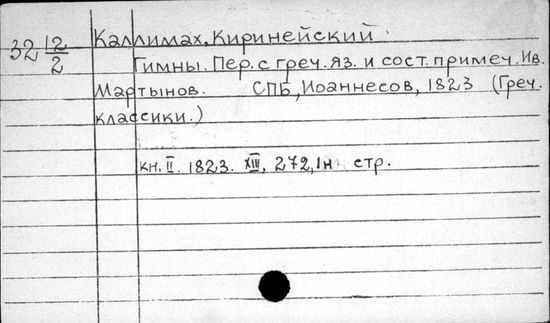 32 12/2 Каллимах, Киринейский
Гимны. Пер. с греч. яз. и сост. примеч. Ив.
Мартынов. СПБ, Иоаннесов, 1823 (Греч.
классики.)
кн. II. 1823. XIII, 272, 1н стр.